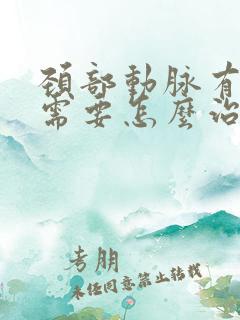 頸部動脉有
需要怎麼治
考朋
未任同意禁止转载